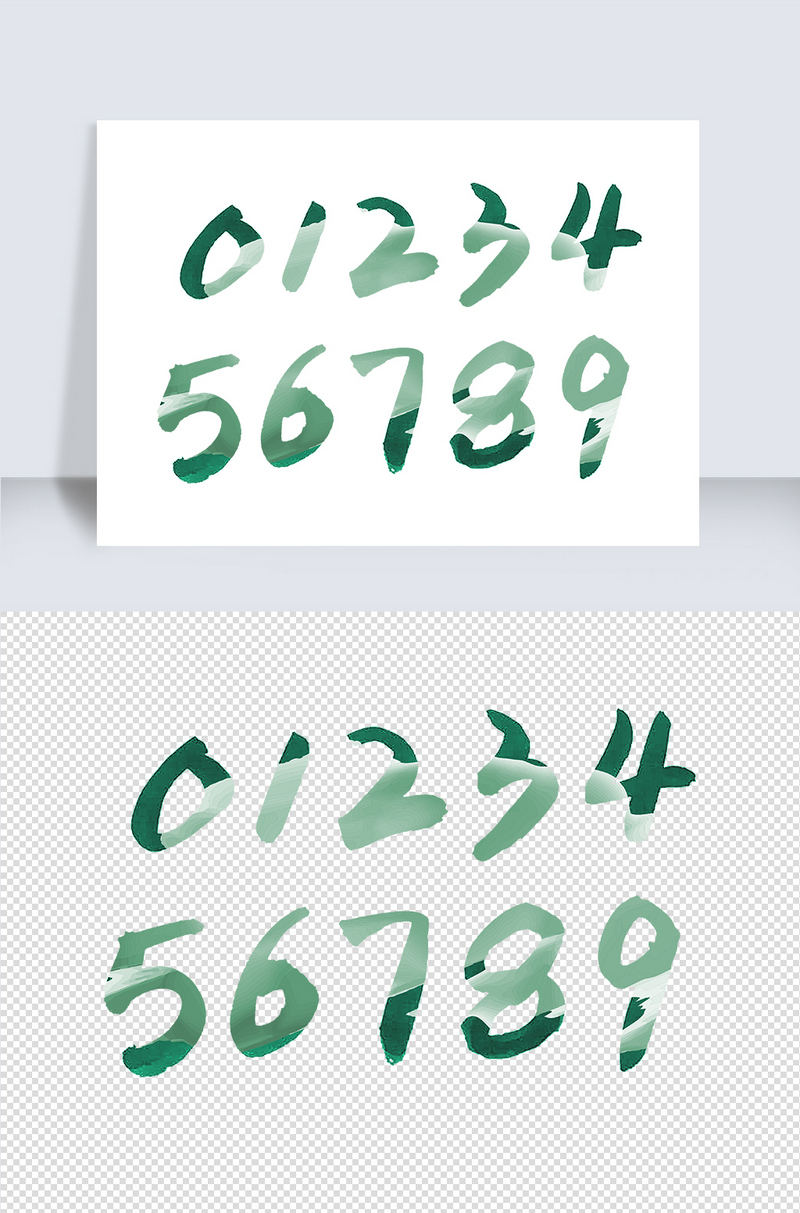 01234
56789
01234
56789